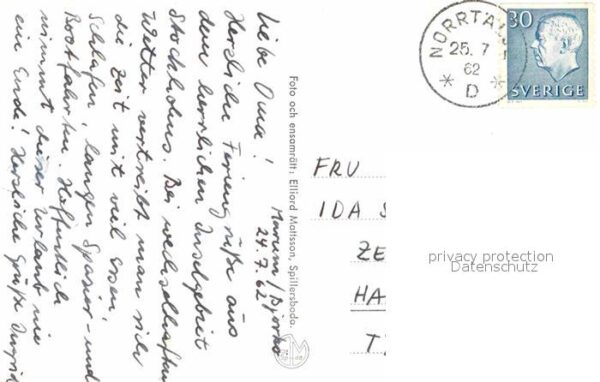 Marum/Björkö
24.7.62
Liebe Oma!
Herzliche Feriengrüße aus
dem herrlichen Inselgebiet
Stockholms. Bei wechselhaftem
Wetter vertreibt man sich
die Zeit mit viel essen,
schlafen, langen Spazier- und
Bootfahrten. Hoffentlich
nimmt dieser Urlaub nie
ein Ende! Herzliche Grüße Ingrid
Foto och ensamrätt: Elliord Mattsson, Spillersboda.
NORRTÄLJE
25. 7
62
* D *
30
SVERIGE
FRU
IDA S
ZE
HA
T
privacy protection
Datenschutz